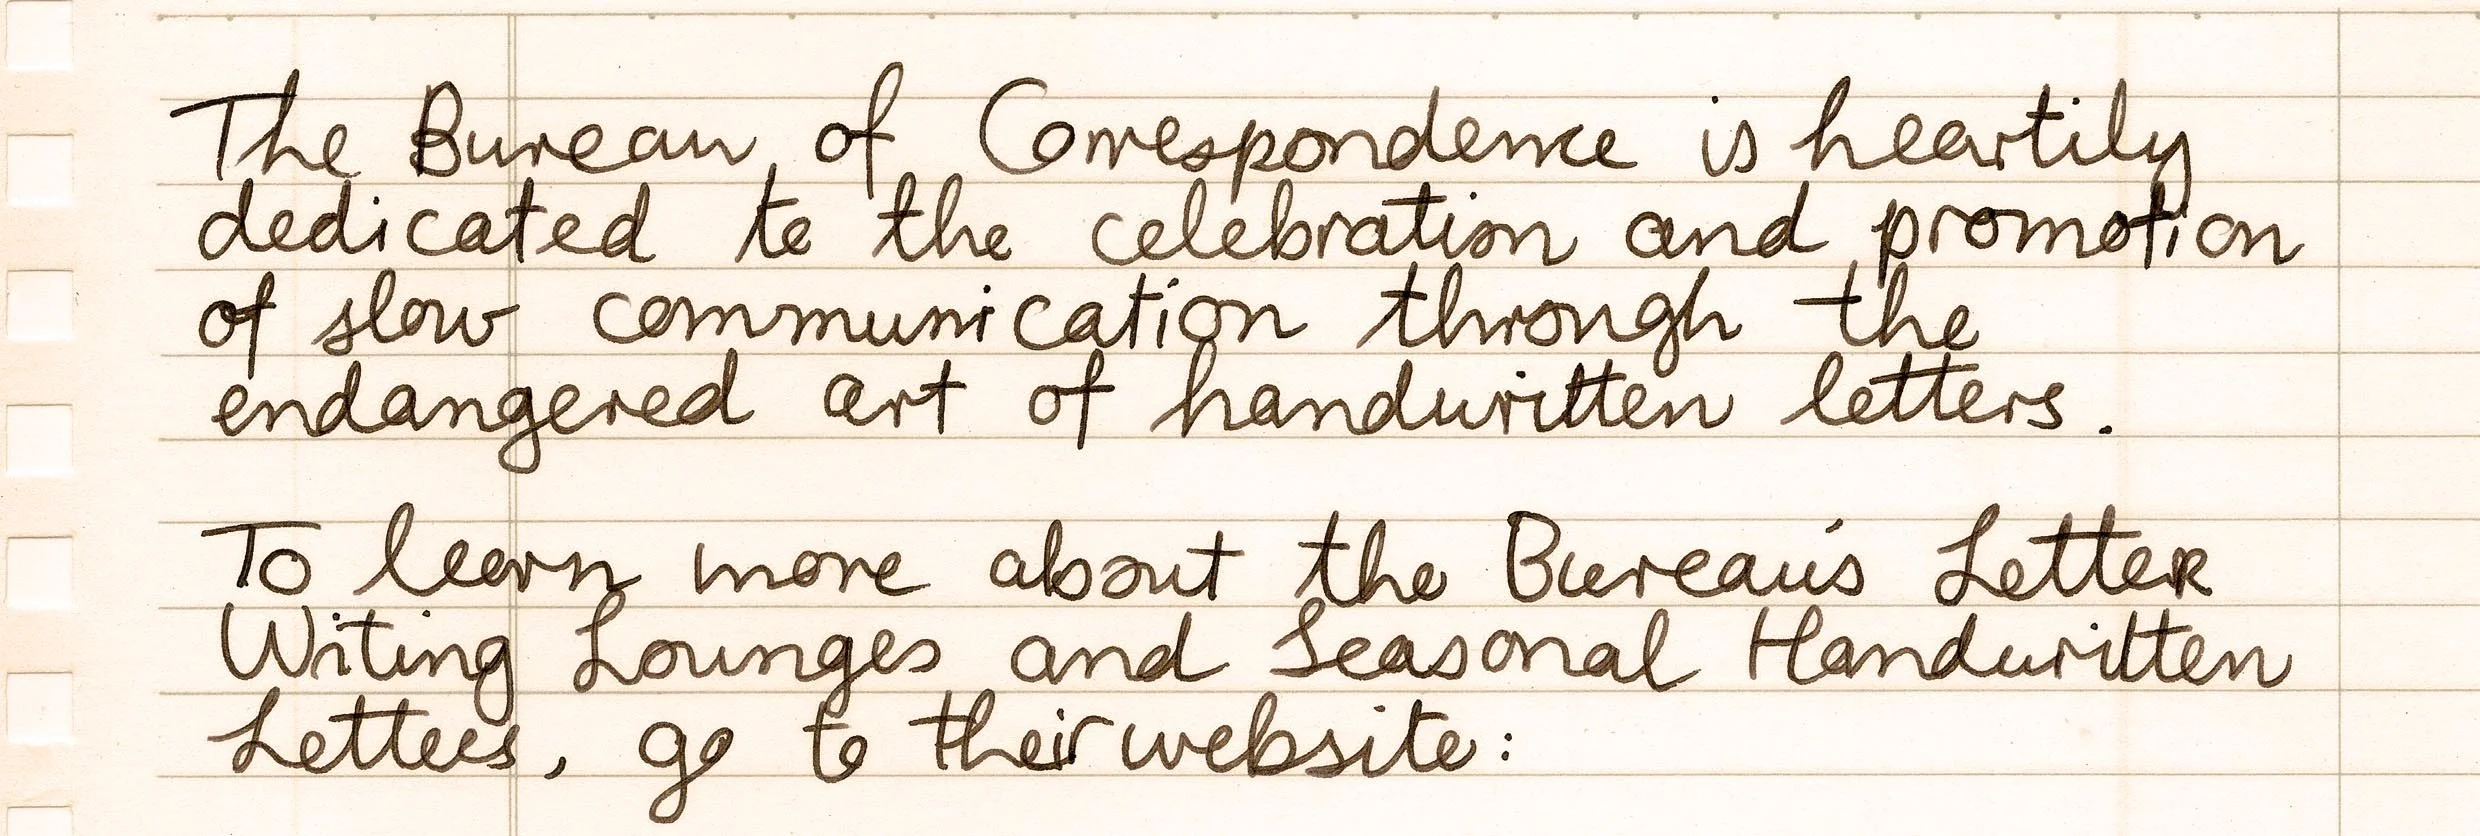 The Bureau of Correspondence is heartily
dedicated to the celebration and promotion
of slow communication through the
endangered art of handwritten letters.
To learn more about the Bureau's Letter
Writing Lounges and Seasonal Handwritten
Letters, go to their website: